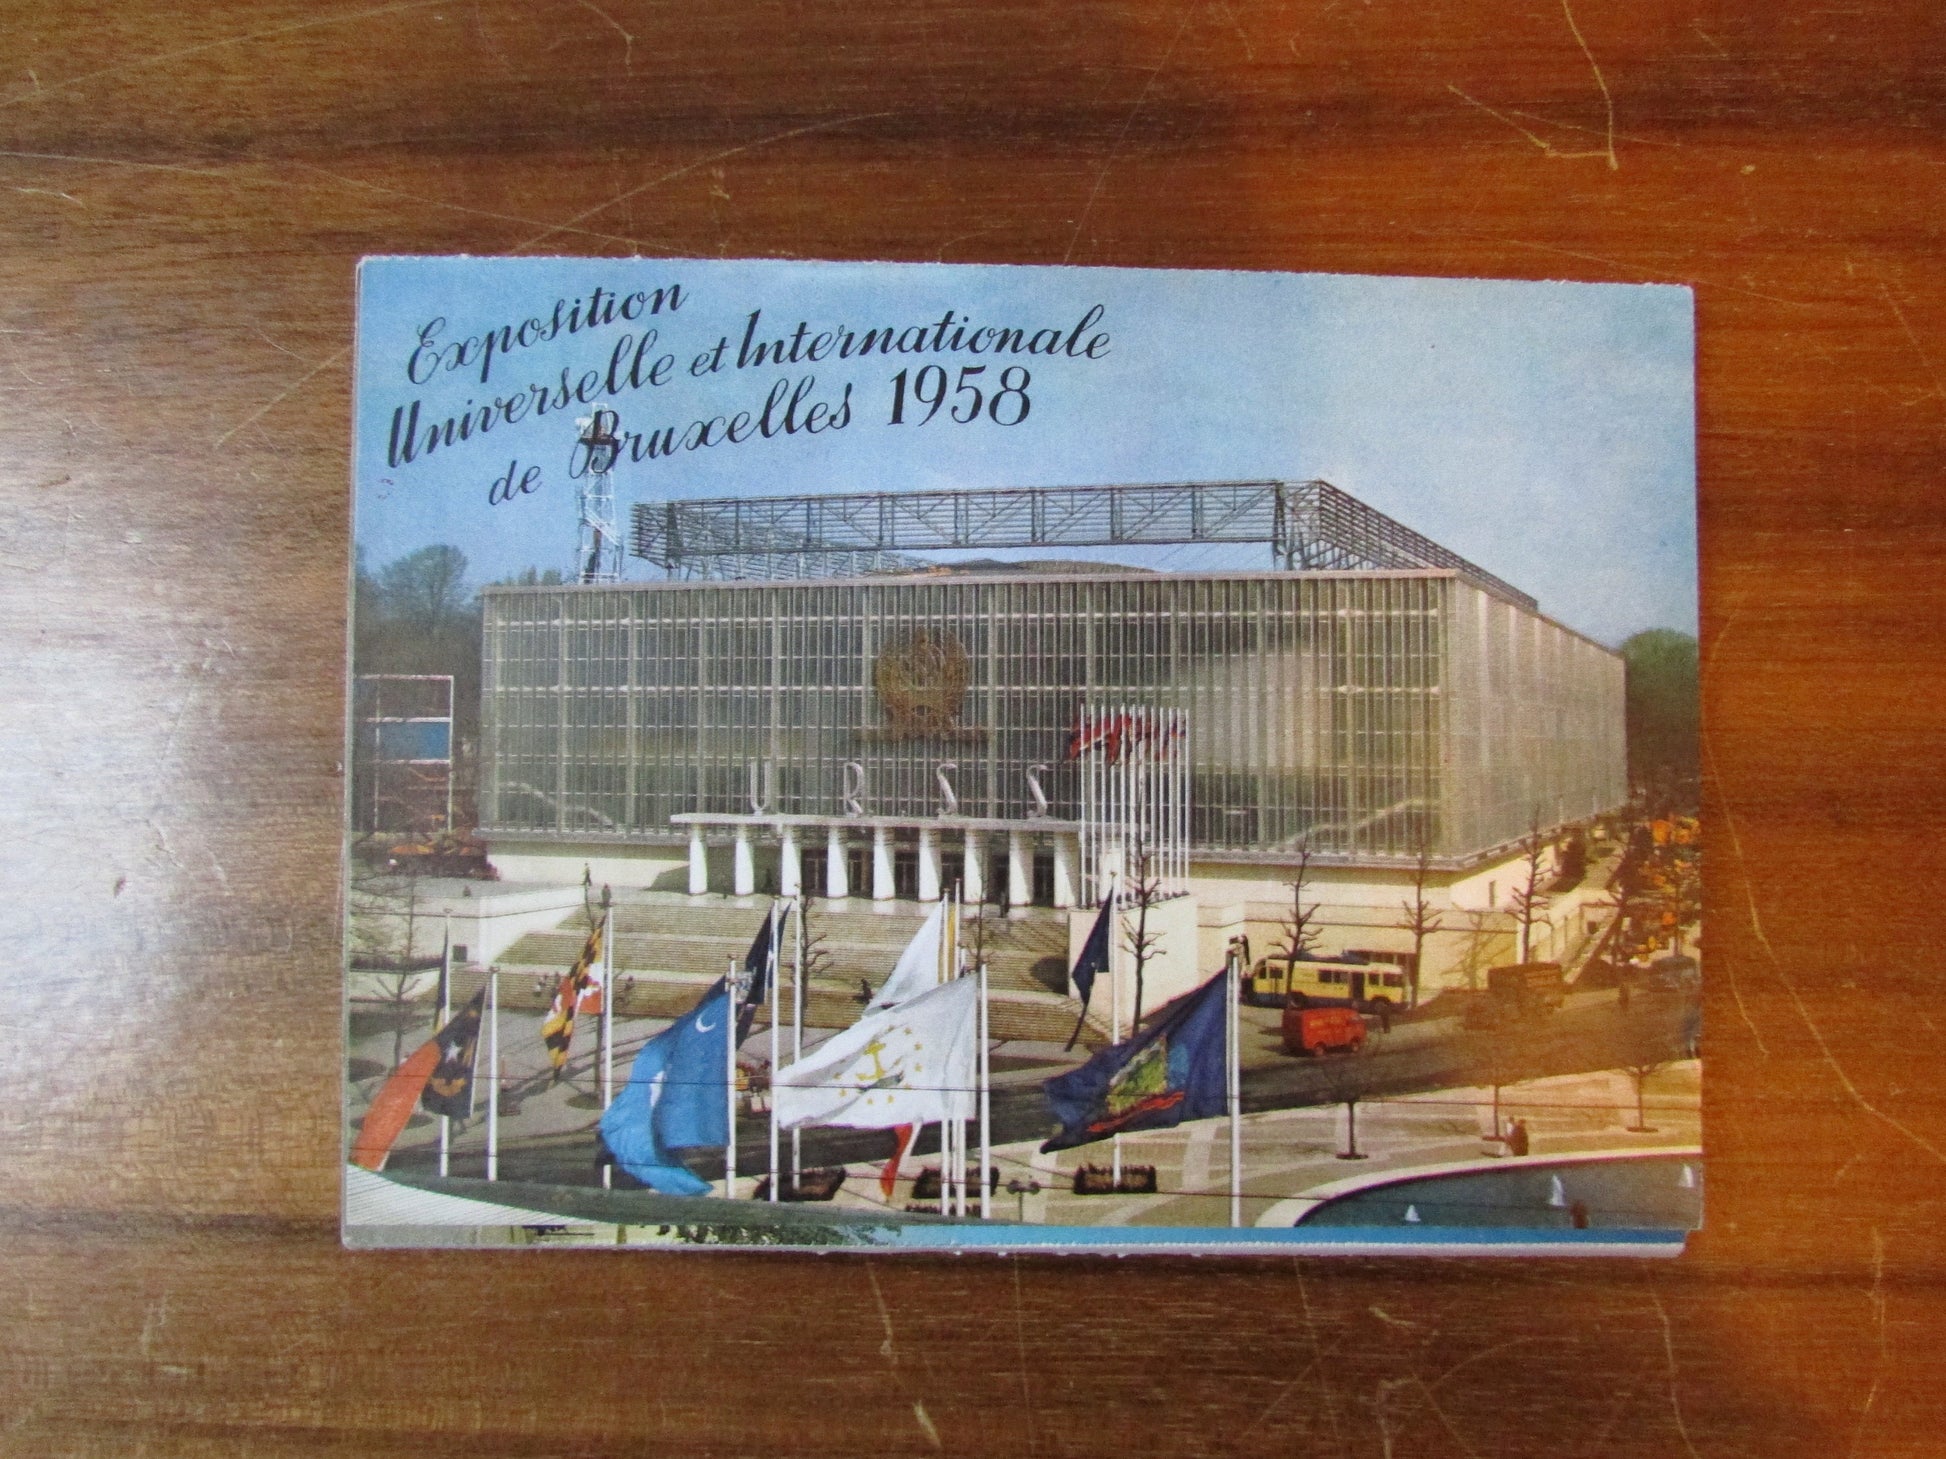 Exposition
Universelle et Internationale
de Bruxelles 1958
URSS